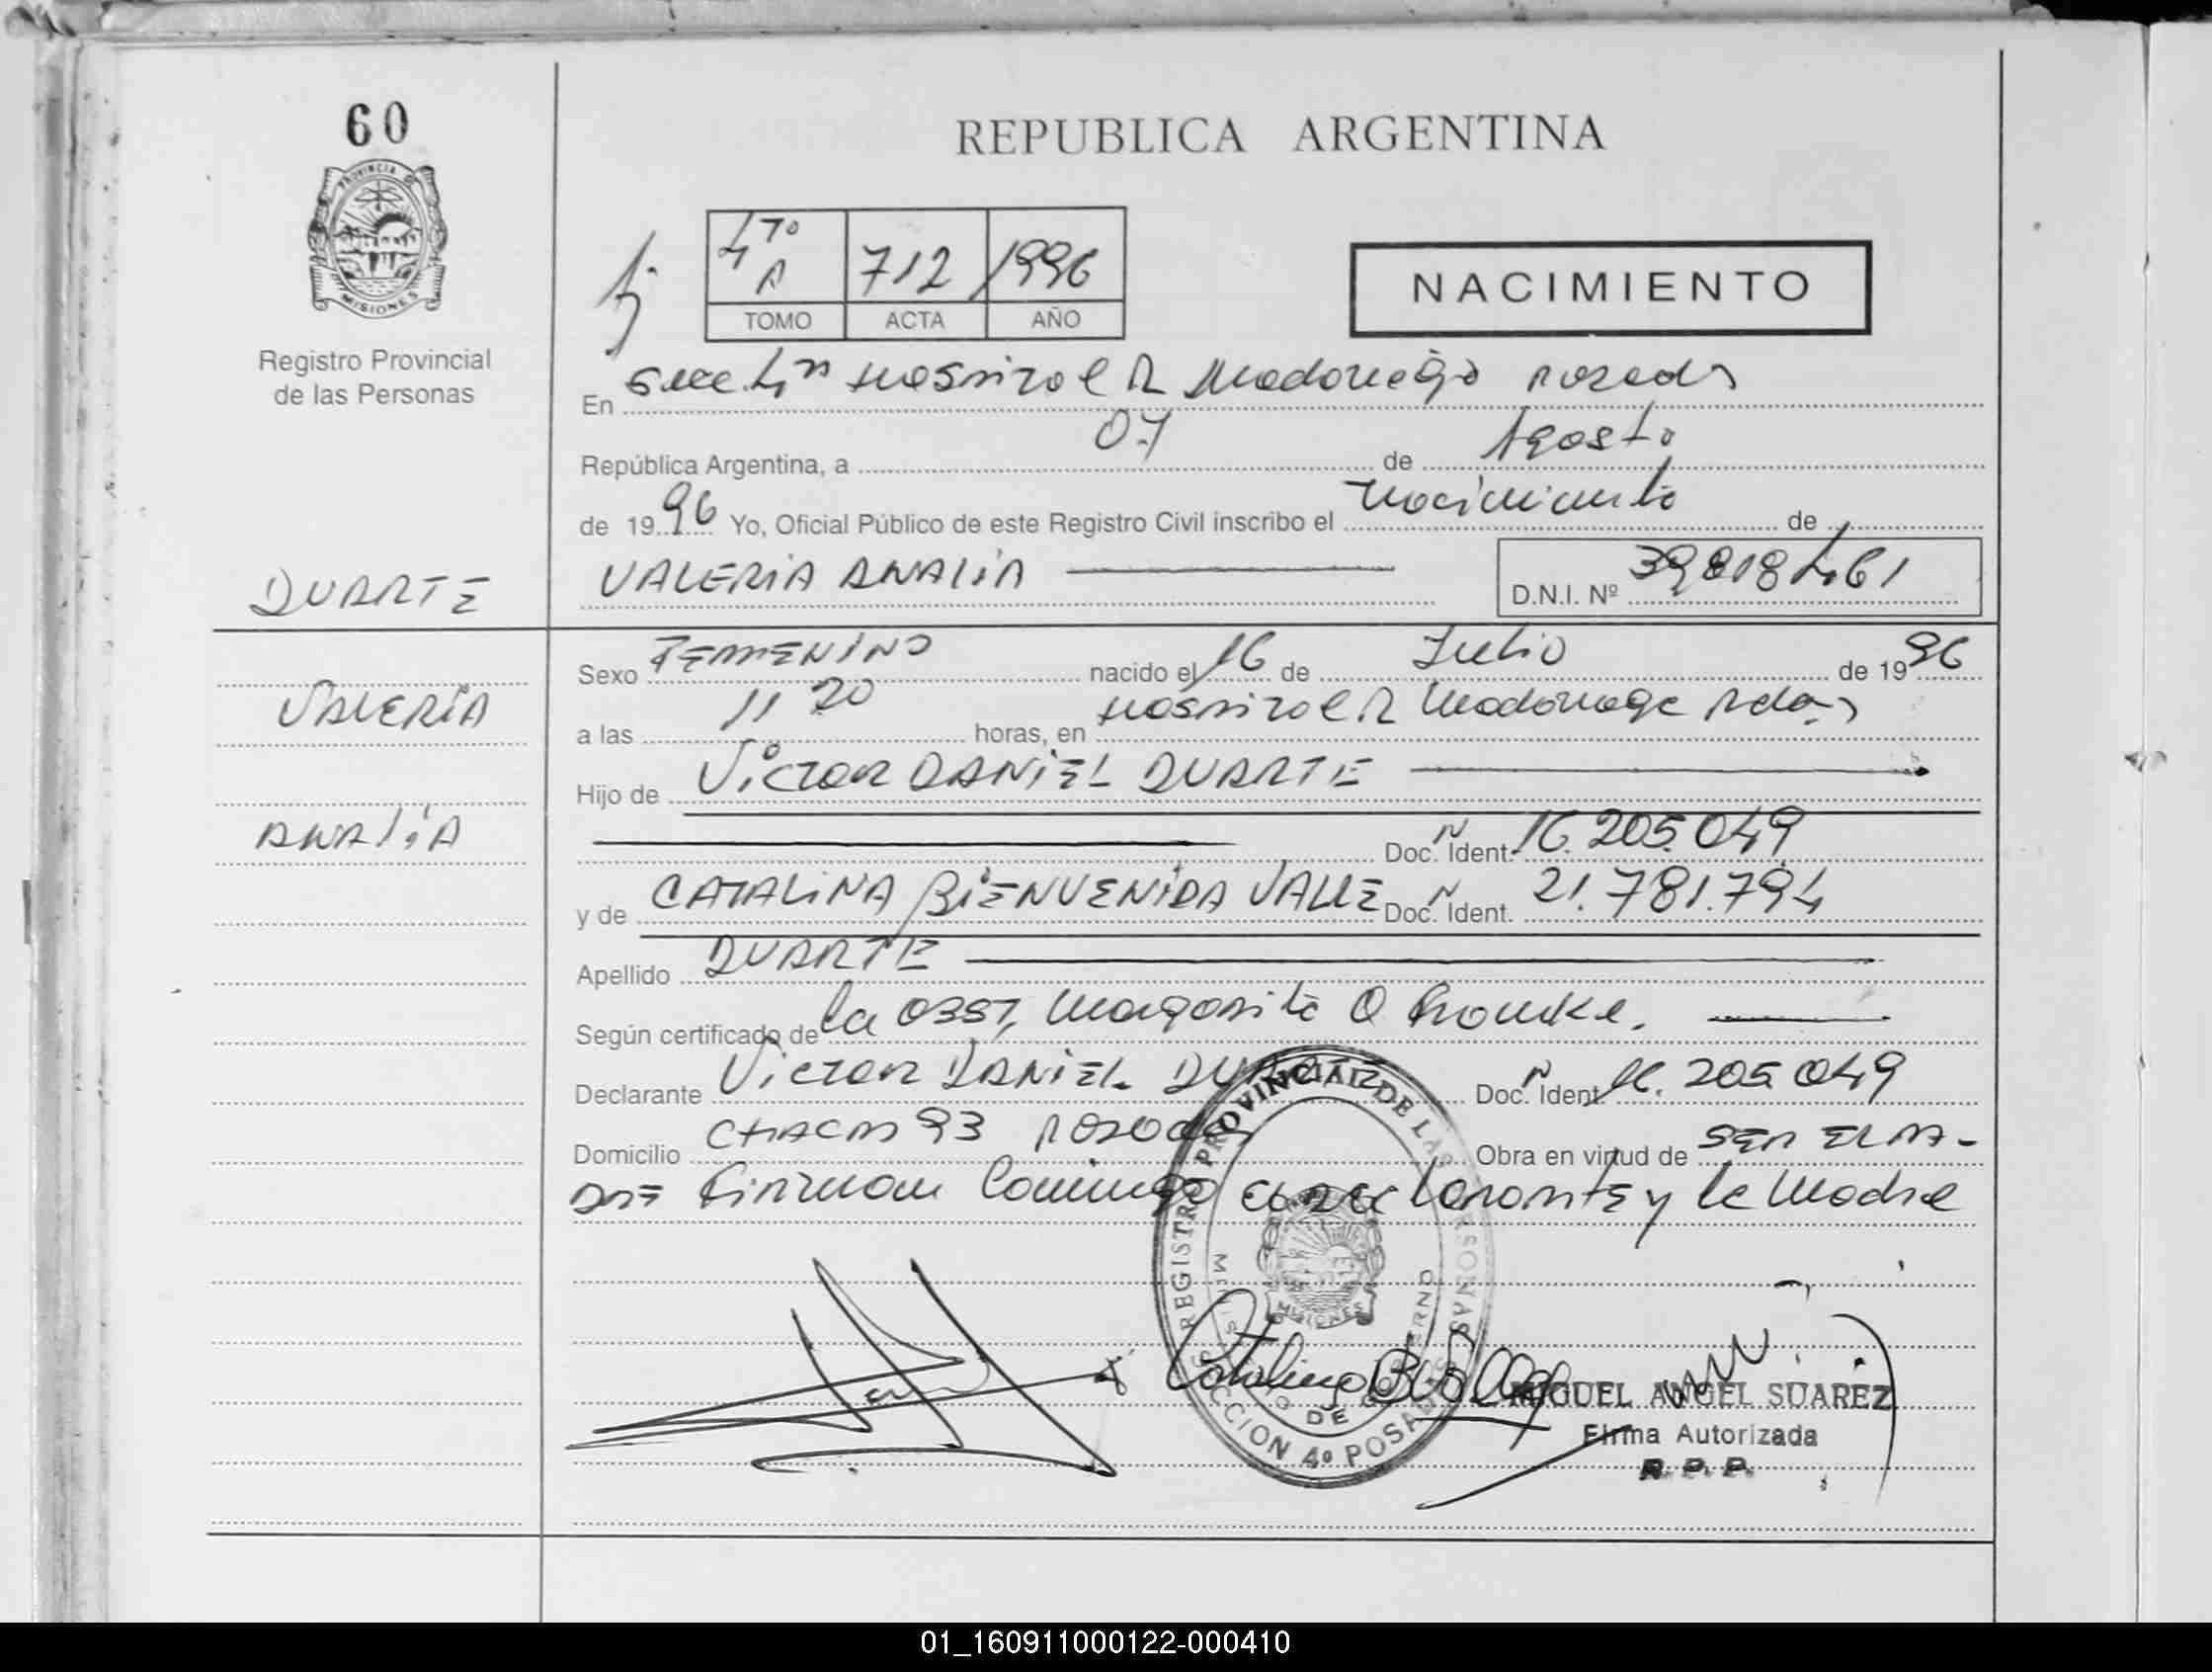 60
PROVINCIA DE
MISIONES
Registro Provincial
de las Personas
REPUBLICA ARGENTINA
4 Tº
A 712 1996
TOMO ACTA AÑO
NACIMIENTO
En Secc 4ª Hospital R Madariaga Posadas
República Argentina, a 07 de Agosto
de 1996 Yo, Oficial Público de este Registro Civil inscribo el nacimiento de
DUARTE
VALERIA ANALIA
D.N.I. Nº 39818461
Sexo FEMENINO nacido el 16 de Julio de 1996
VALERIA
a las 11 20 horas, en Hospital R Madariaga Pdas
Hijo de Victor DANIEL DUARTE
ANALIA
Doc. Ident. N 16.205.049
y de CATALINA BIENVENIDA VALLE Doc. Ident. N 21.781.794
Apellido DUARTE
Según certificado de la Obst, Margarita
Declarante Victor DANIEL DUARTE Doc. Ident. N 16.205.049
Domicilio CHACRA 93 Posadas Obra en virtud de SER EL PA-
DRE Firman Conmigo el declarante y la Madre
REGISTRO PROVINCIAL DE LAS PERSONAS
MINISTERIO DE GOBIERNO
MISIONES
SECCION 4º POSADAS
Catalina B
MIGUEL ANGEL SUAREZ
Firma Autorizada
R. P. P.
01_160911000122-000410